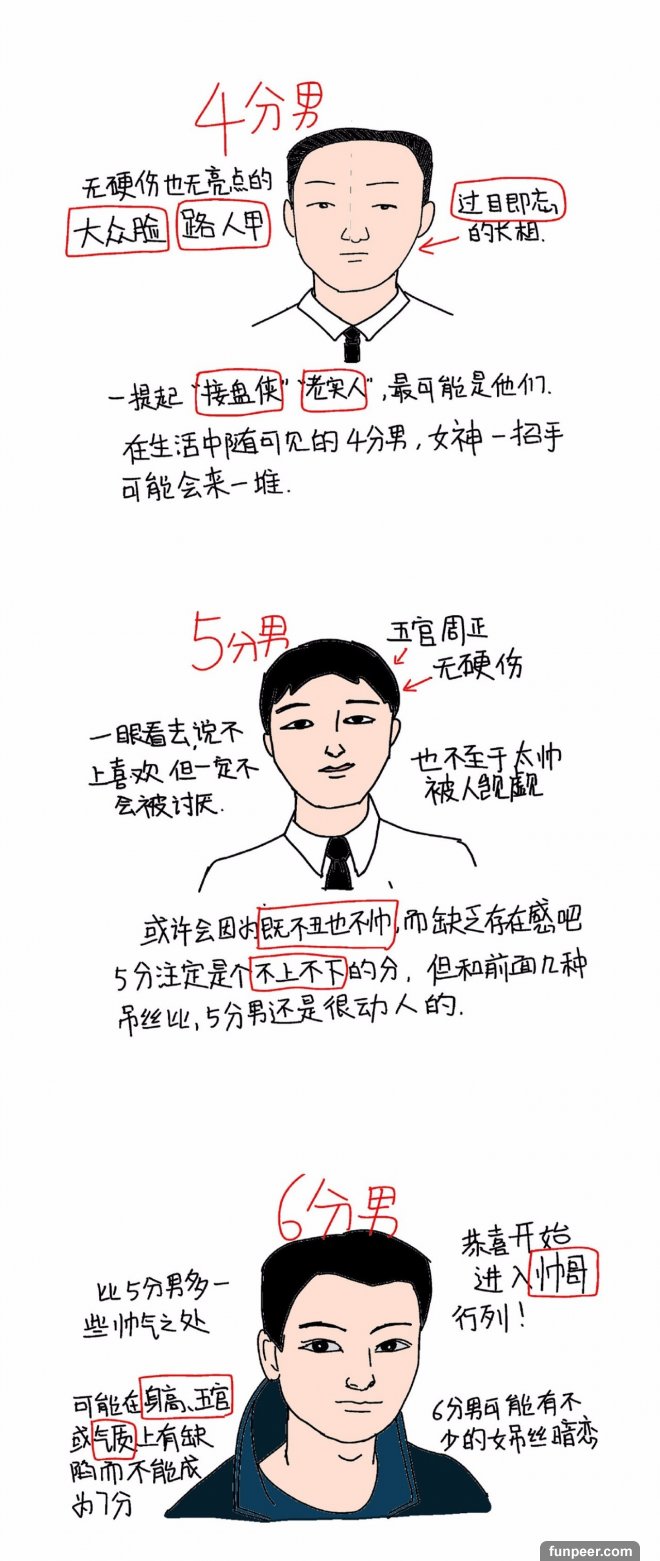 4分男
无硬伤也无亮点的
大众脸 路人甲
过目即忘
的长相.
一提起“接盘侠”“老实人”,最可能是他们.
在生活中随可见的4分男,女神一招手
可能会来一堆.
5分男
五官周正
无硬伤
一眼看去,说不
上喜欢 但一定不
会被讨厌.
也不至于太帅
被人觊觎
或许会因为既不丑也不帅,而缺乏存在感吧
5分注定是个不上不下的分, 但和前面几种
吊丝比,5分男还是很动人的.
6分男
恭喜开始
进入帅哥
行列!
比5分男多一
些帅气之处
可能在身高、五官
或气质上有缺
陷而不能成
为7分
6分男可能有不
少的女吊丝暗恋
funpeer.com